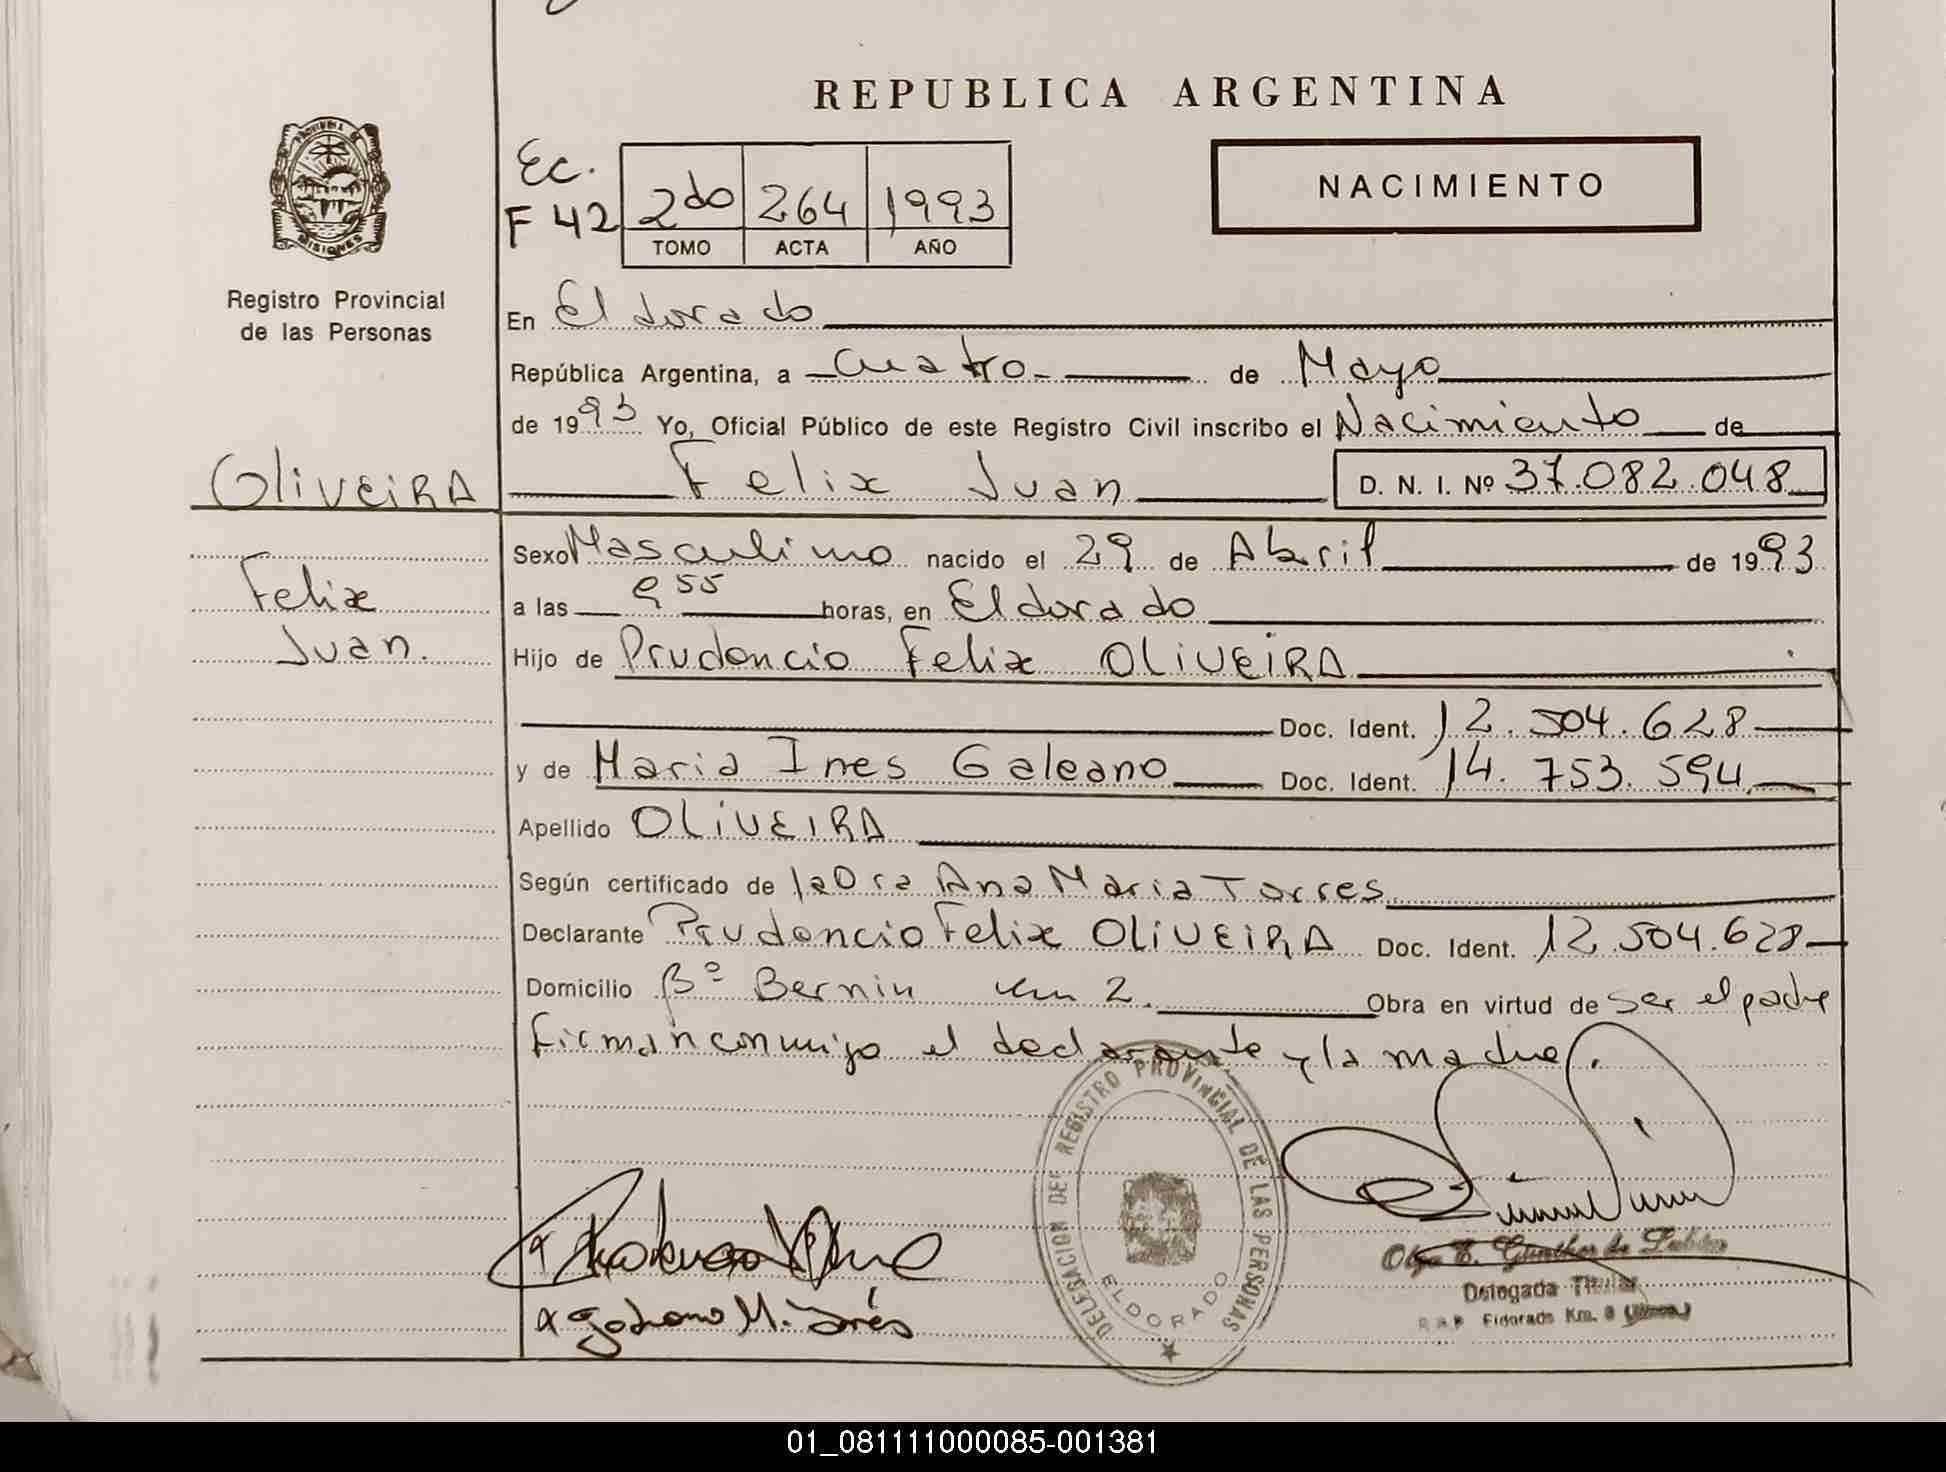 REPUBLICA ARGENTINA
PROVINCIA DE
MISIONES
Registro Provincial
de las Personas
Ec.
F 42
2do 264 1993
TOMO ACTA AÑO
NACIMIENTO
En Eldorado
República Argentina, a cuatro de Mayo
de 1993 Yo, Oficial Público de este Registro Civil inscribo el Nacimiento de
OLIVEIRA
Felix Juan D. N. I. Nº 37.082.048
Sexo Masculino nacido el 29 de Abril de 1993
Felix
a las 9 55 horas, en Eldorado
Juan.
Hijo de Prudencio Felix OLIVEIRA
Doc. Ident. 12.504.628
y de Maria Ines Galeano Doc. Ident. 14.753.594
Apellido OLIVEIRA
Según certificado de la Dra Ana Maria Torres
Declarante Prudencio Felix OLIVEIRA Doc. Ident. 12.504.628
Domicilio Bº Bernin km 2. Obra en virtud de ser el padre
firman conmigo el declarante y la madre.
DELEGACION DEL REGISTRO PROVINCIAL DE LAS PERSONAS
ELDORADO
Olga E. Günther de
Delegada Titular
Eldorado Km. 9
x Galeano M. Inés
01_081111000085-001381